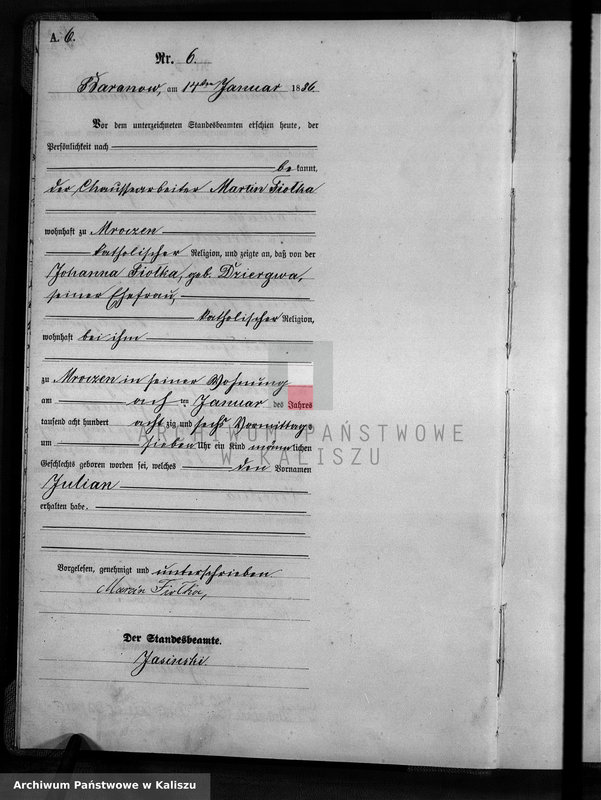 A. 6.
Nr. 6.
Baranow, am 14ten Januar 1886
Vor dem unterzeichneten Standesbeamten erschien heute, der
Persönlichkeit nach
bekannt,
der Chaussearbeiter Martin Fiolka
wohnhaft zu Mroczen
katholischer Religion, und zeigte an, daß von der
Johanna Fiolka, geb. Dziergwa,
seiner Ehefrau,
katholischer Religion,
wohnhaft bei ihm
zu Mroczen in seiner Wohnung
am acht ten Januar des Jahres
tausend acht hundert acht zig und sechs Vormittags
um sieben Uhr ein Kind männlichen
Geschlechts geboren worden sei, welches den Vornamen
Julian
erhalten habe.
Vorgelesen, genehmigt und unterschrieben
Marcin Fiolka,
Der Standesbeamte.
Jasinski
ARCHIWUM PAŃSTWOWE
W KALISZU
Archiwum Państwowe w Kaliszu